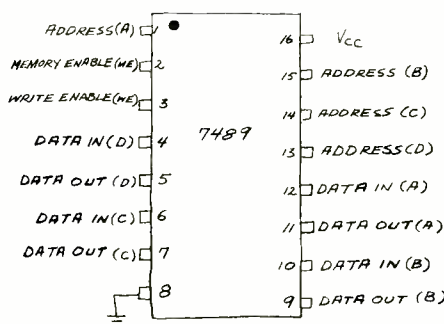 ADDRESS(A) 1
MEMORY ENABLE(ME) 2
WRITE ENABLE(WE) 3
DATA IN(D) 4
DATA OUT (D) 5
DATA IN(C) 6
DATA OUT (C) 7
8
7489
16 Vcc
15 ADDRESS (B)
14 ADDRESS (C)
13 ADDRESS(D)
12 DATA IN (A)
11 DATA OUT(A)
10 DATA IN (B)
9 DATA OUT (B)